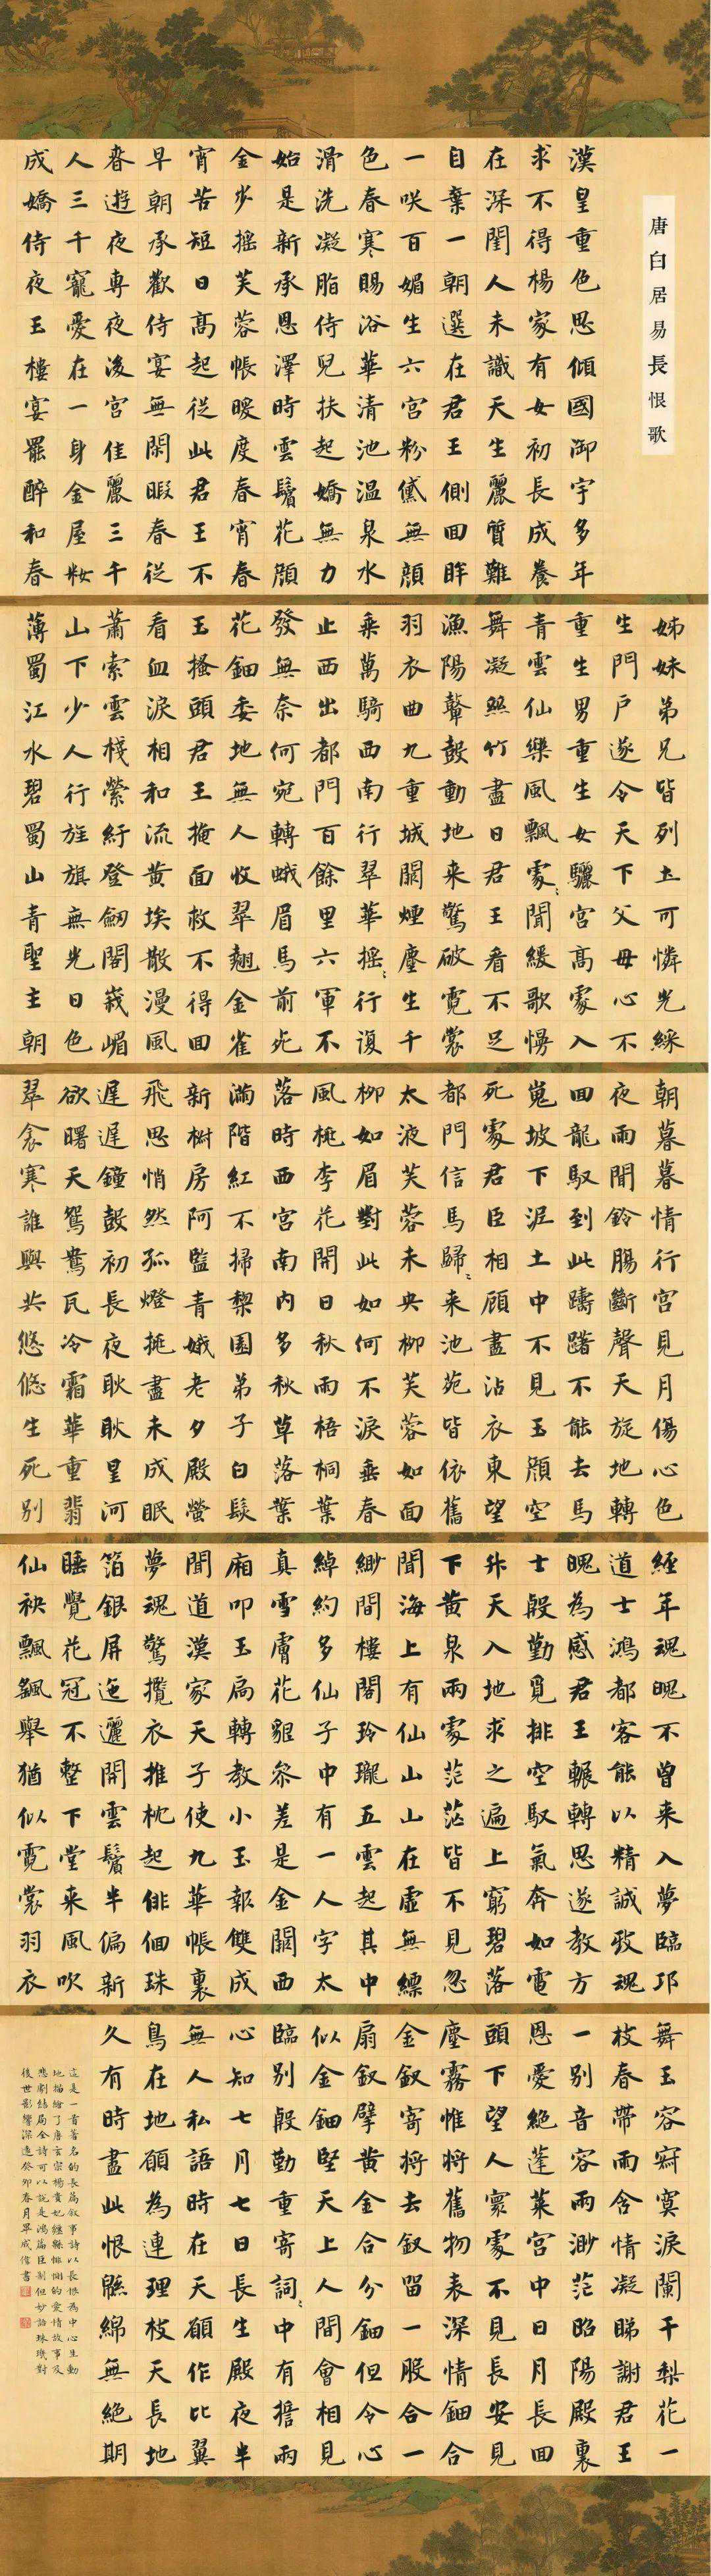 唐白居易長恨歌
漢皇重色思傾國御宇多年
求不得楊家有女初長成養
在深閨人未識天生麗質難
自棄一朝選在君王側回眸
一咲百媚生六宮粉黛無顏
色春寒賜浴華清池溫泉水
滑洗凝脂侍兒扶起嬌無力
始是新承恩澤時雲鬢花顏
金步搖芙蓉帳暖度春宵春
宵苦短日高起從此君王不
早朝承歡侍宴無閑暇春從
春遊夜專夜後宮佳麗三千
人三千寵愛在一身金屋妝
成嬌侍夜玉樓宴罷醉和春
姊妹弟兄皆列土可憐光綵
生門戶遂令天下父母心不
重生男重生女驪宮高處入
青雲仙樂風飄處〻聞緩歌慢
舞凝絲竹盡日君王看不足
漁陽鼙鼓動地来驚破霓裳
羽衣曲九重城闕煙塵生千
乘萬騎西南行翠華搖〻行復
止西出都門百餘里六軍不
發無奈何宛轉蛾眉馬前死
花鈿委地無人收翠翹金雀
玉搔頭君王掩面救不得回
看血淚相和流黃埃散漫風
蕭索雲棧縈紆登劍閣峨嵋
山下少人行旌旗無光日色
薄蜀江水碧蜀山青聖主朝
朝暮暮情行宮見月傷心色
夜雨聞鈴腸斷聲天旋地轉
回龍馭到此躊躇不能去馬
嵬坡下泥土中不見玉顏空
死處君臣相顧盡沾衣東望
都門信馬歸〻来池苑皆依舊
太液芙蓉未央柳芙蓉如面
柳如眉對此如何不淚垂春
風桃李花開日秋雨梧桐葉
落時西宮南內多秋草落葉
滿階紅不掃梨園弟子白髮
新椒房阿監青娥老夕殿螢
飛思悄然孤燈挑盡未成眠
遲遲鐘鼓初長夜耿耿星河
欲曙天鴛鴦瓦冷霜華重翡
翠衾寒誰與共悠悠生死別
經年魂魄不曾来入夢臨邛
道士鴻都客能以精誠致魂
魄為感君王輾轉思遂教方
士殷勤覓排空馭氣奔如電
升天入地求之遍上窮碧落
下黃泉兩處茫茫皆不見忽
聞海上有仙山山在虛無縹
緲間樓閣玲瓏五雲起其中
綽約多仙子中有一人字太
真雪膚花貌參差是金闕西
廂叩玉扃轉教小玉報雙成
聞道漢家天子使九華帳裏
夢魂驚攬衣推枕起徘徊珠
箔銀屏迤邐開雲鬢半偏新
睡覺花冠不整下堂来風吹
仙袂飄颻舉猶似霓裳羽衣
舞玉容寂寞淚闌干梨花一
枝春帶雨含情凝睇謝君王
一別音容兩渺茫昭陽殿裏
恩愛絕蓬萊宮中日月長回
頭下望人寰處不見長安見
塵霧惟將舊物表深情鈿合
金釵寄將去釵留一股合一
扇釵擘黃金合分鈿但令心
似金鈿堅天上人間會相見
臨別殷勤重寄詞〻中有誓兩
心知七月七日長生殿夜半
無人私語時在天願作比翼
鳥在地願為連理枝天長地
久有時盡此恨緜綿無絕期
這是一首著名的長篇叙事詩以長恨為中心生動
地描繪了唐玄宗楊貴妃纏緜悱惻的愛情故事及
悲劇結局全詩可以說是鴻篇巨制但妙語珠璣對
後世影響深遠癸卯春月畢成偉書